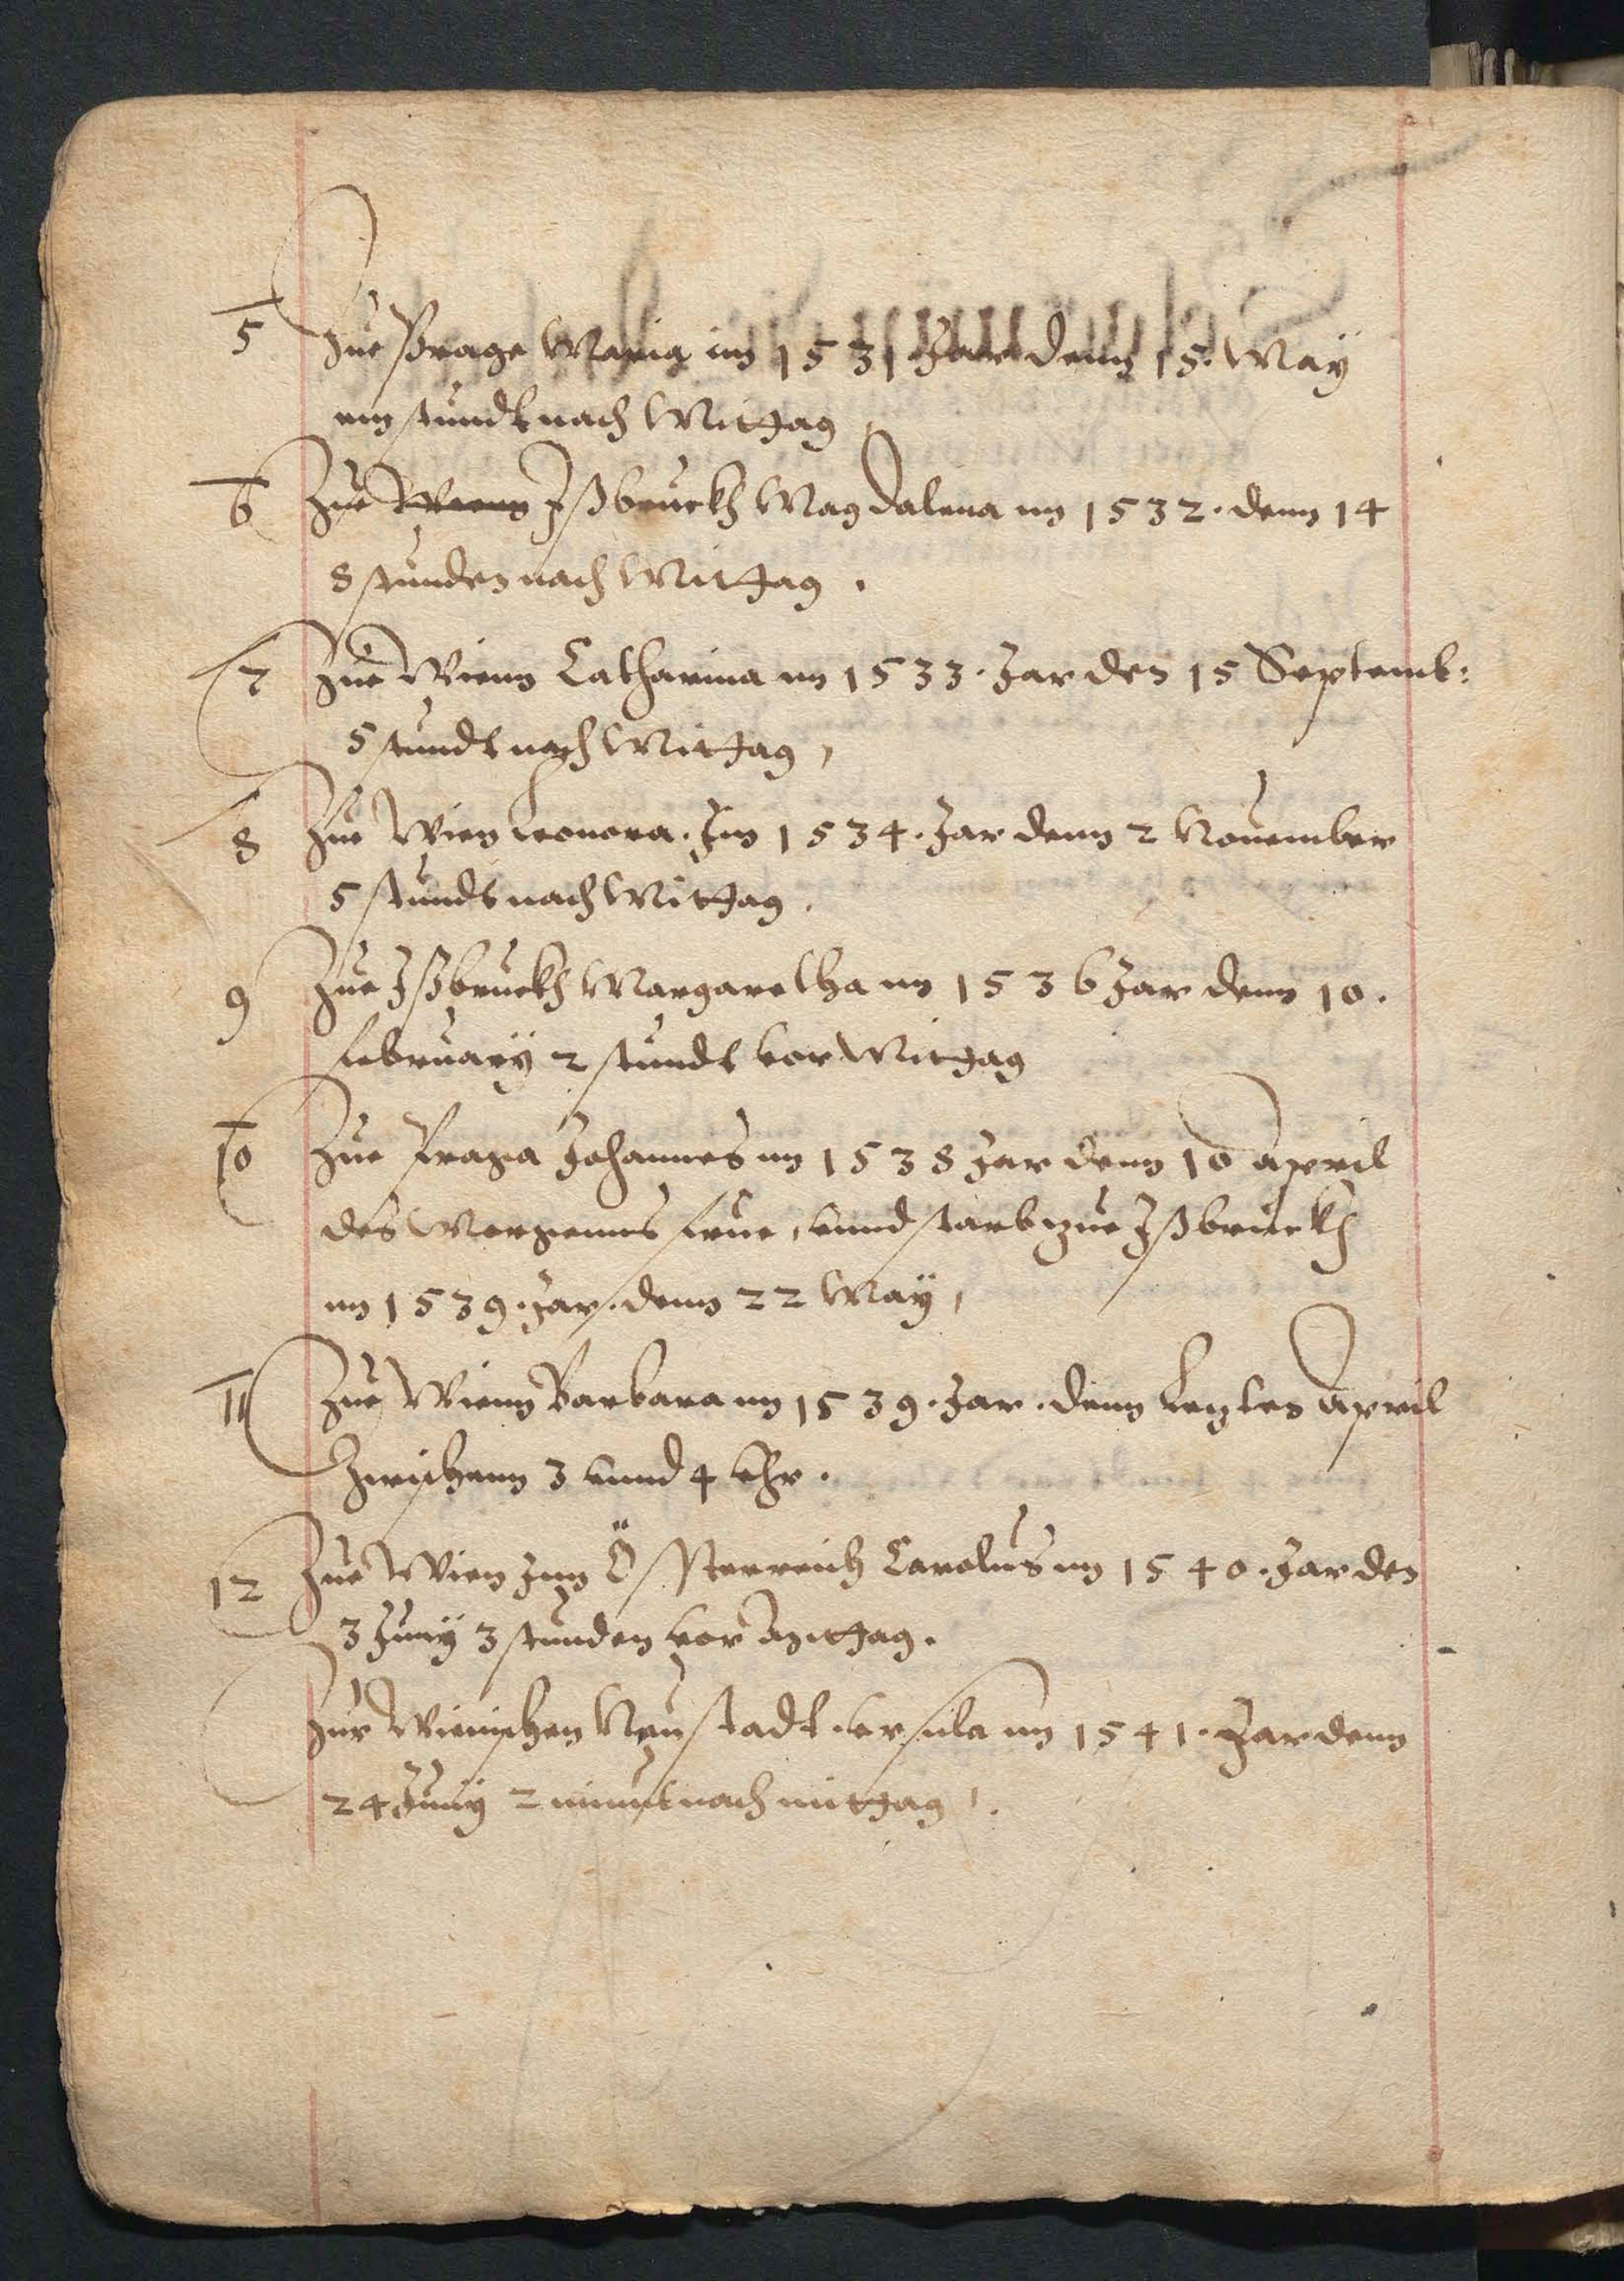 5 Zue Prage Maria im 1531 Jar denn 15. Maÿ
ein stundt nach Mittag
6 Zue Wienn Jßbruckh Magdalena im 1532. denn 14
8 stunden nach Mittag.
7 Zue Wienn Catharina im 1533. Jar den 15 Septemb:
5 stundt nach Mittag,
8 Zue Wien Leonora. Jm 1534. Jar denn 2 Nouember
5 stundt nach Mittag.
9 Zue Jßbruckh Margaretha im 1536 Jar denn 10.
februarÿ 2 stundt vor Mittag
10 Zue Praga Johannes im 1538 Jar denn 10 April
des Morgenns frue, vnnd starb zue Jßbruckh
im 1539. Jar. denn 22 Maÿ,
11 Zue Wienn Barbara im 1539. Jar. denn Lezten April
Zwischenn 3 vnnd 4 vhr.
12 Zue Wien Jnn Össterreich Carolus im 1540. Jar den
3 Junÿ 3 stunden vor Mittag.
Zur Wienischen Neustadt. vrsula im 1541. Jar denn
24 Junÿ 2 minut nach mittag.